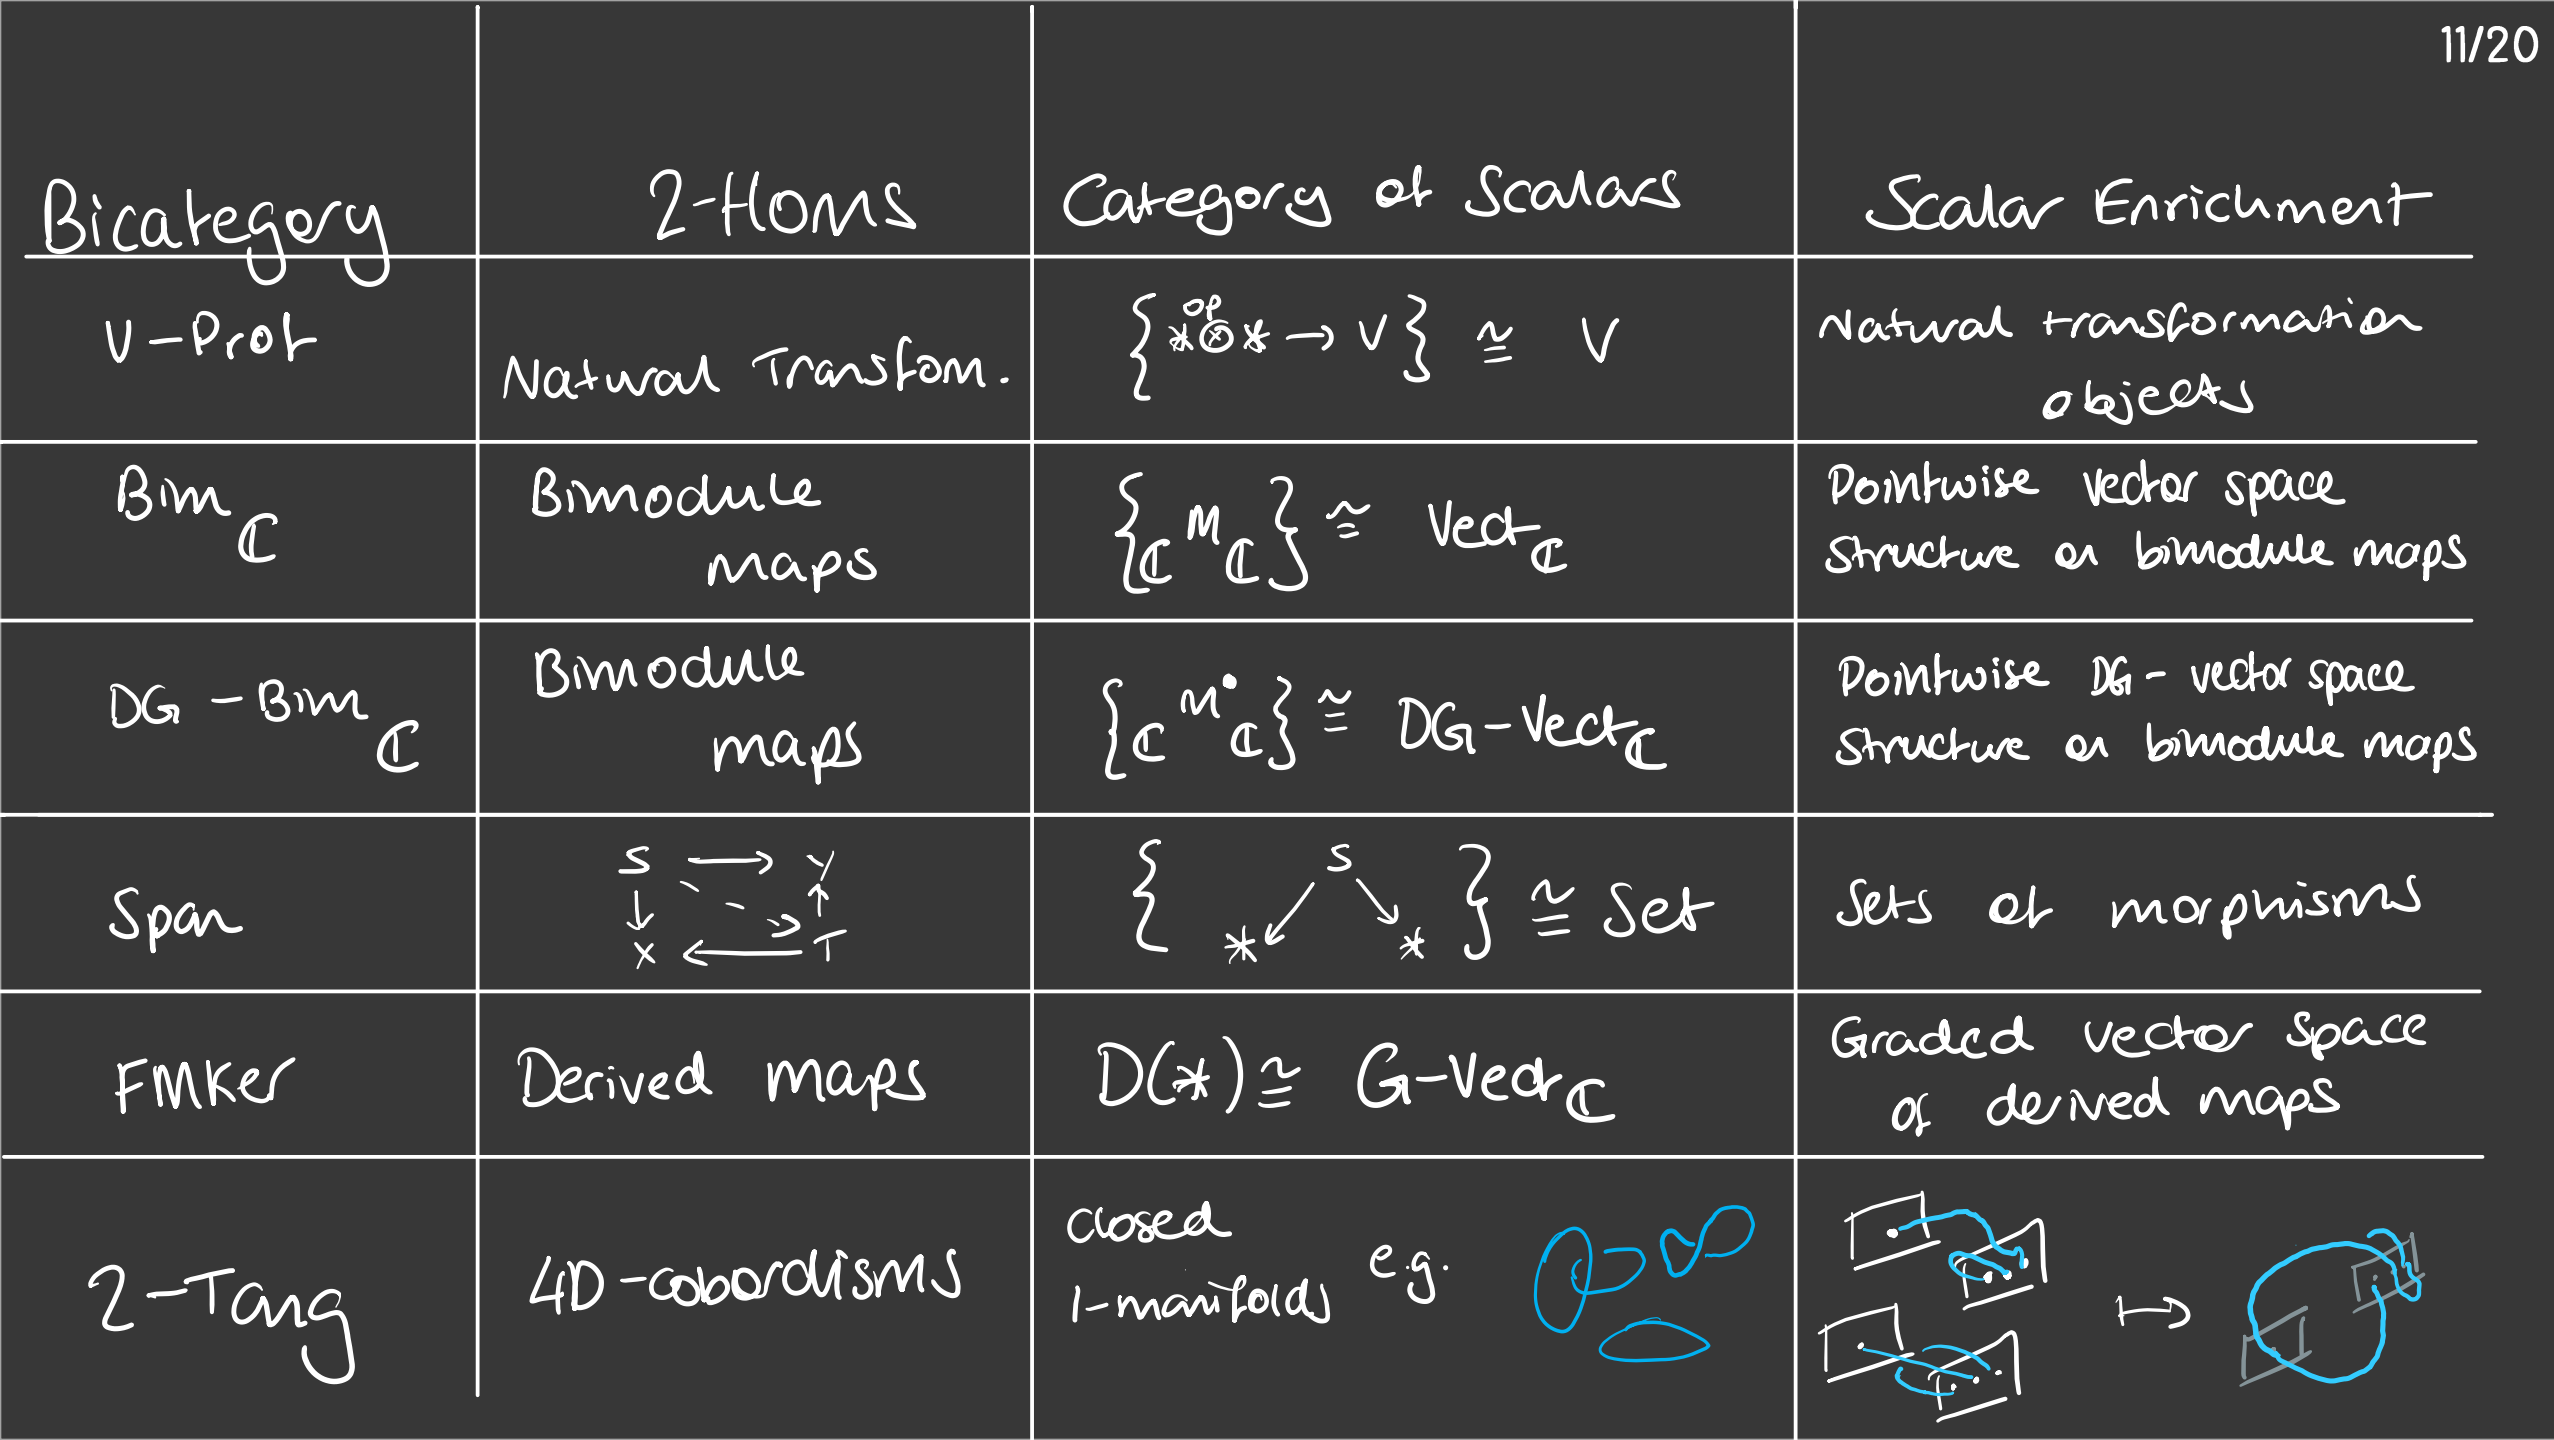 11/20
Bicategory 2-Homs Category of Scalars Scalar Enrichment
V-Prof Natural Transfom. {*ᵒᵖ⊗* → V} ≅ V Natural transformation
objects
Bim_ℂ Bimodule
maps {_ℂ M _ℂ} ≅ Vect_ℂ Pointwise vector space
structure on bimodule maps
DG-Bim_ℂ Bimodule
maps {_ℂ M• _ℂ} ≅ DG-Vect_ℂ Pointwise DG-vector space
structure on bimodule maps
Span S → Y
↓ ↑
X ← T
{ S
↙ ↘
* * } ≅ Set Sets of morphisms
FMKer Derived maps D(*) ≅ G-Vect_ℂ Graded vector space
of derived maps
2-Tang 4D-cobordisms closed
1-manifolds e.g. ↦